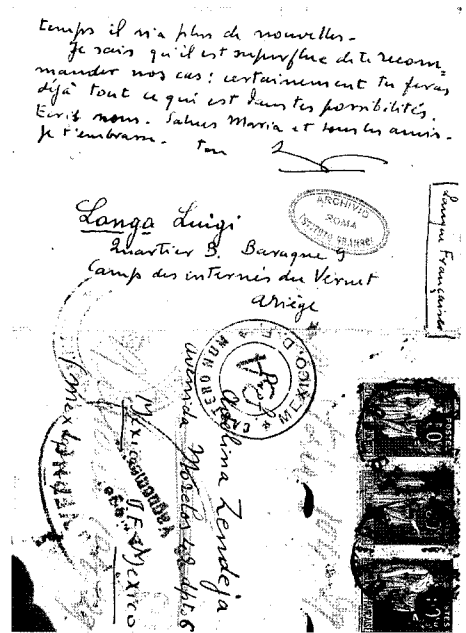 temps il n'a plus de nouvelles.
Je sais qu'il est superflue de te recom-
mander nos cas: certainement tu feras
déjà tout ce qui est dans tes possibilités.
Ecris nous. Salues Maria et tous les amis.
Je t'embrasse. ton
Longo Luigi
Quartier B. Baraque 9
Camp des internés du Vernet
Ariège
ARCHIVIO
ROMA
ISTITUTO GRAMSCI
Langue Française
CARTERO
MEXICO, D. F.
Carolina Zendeja
avenida Morelos dpto 6
Mexico D.F. Mexico
POSTES